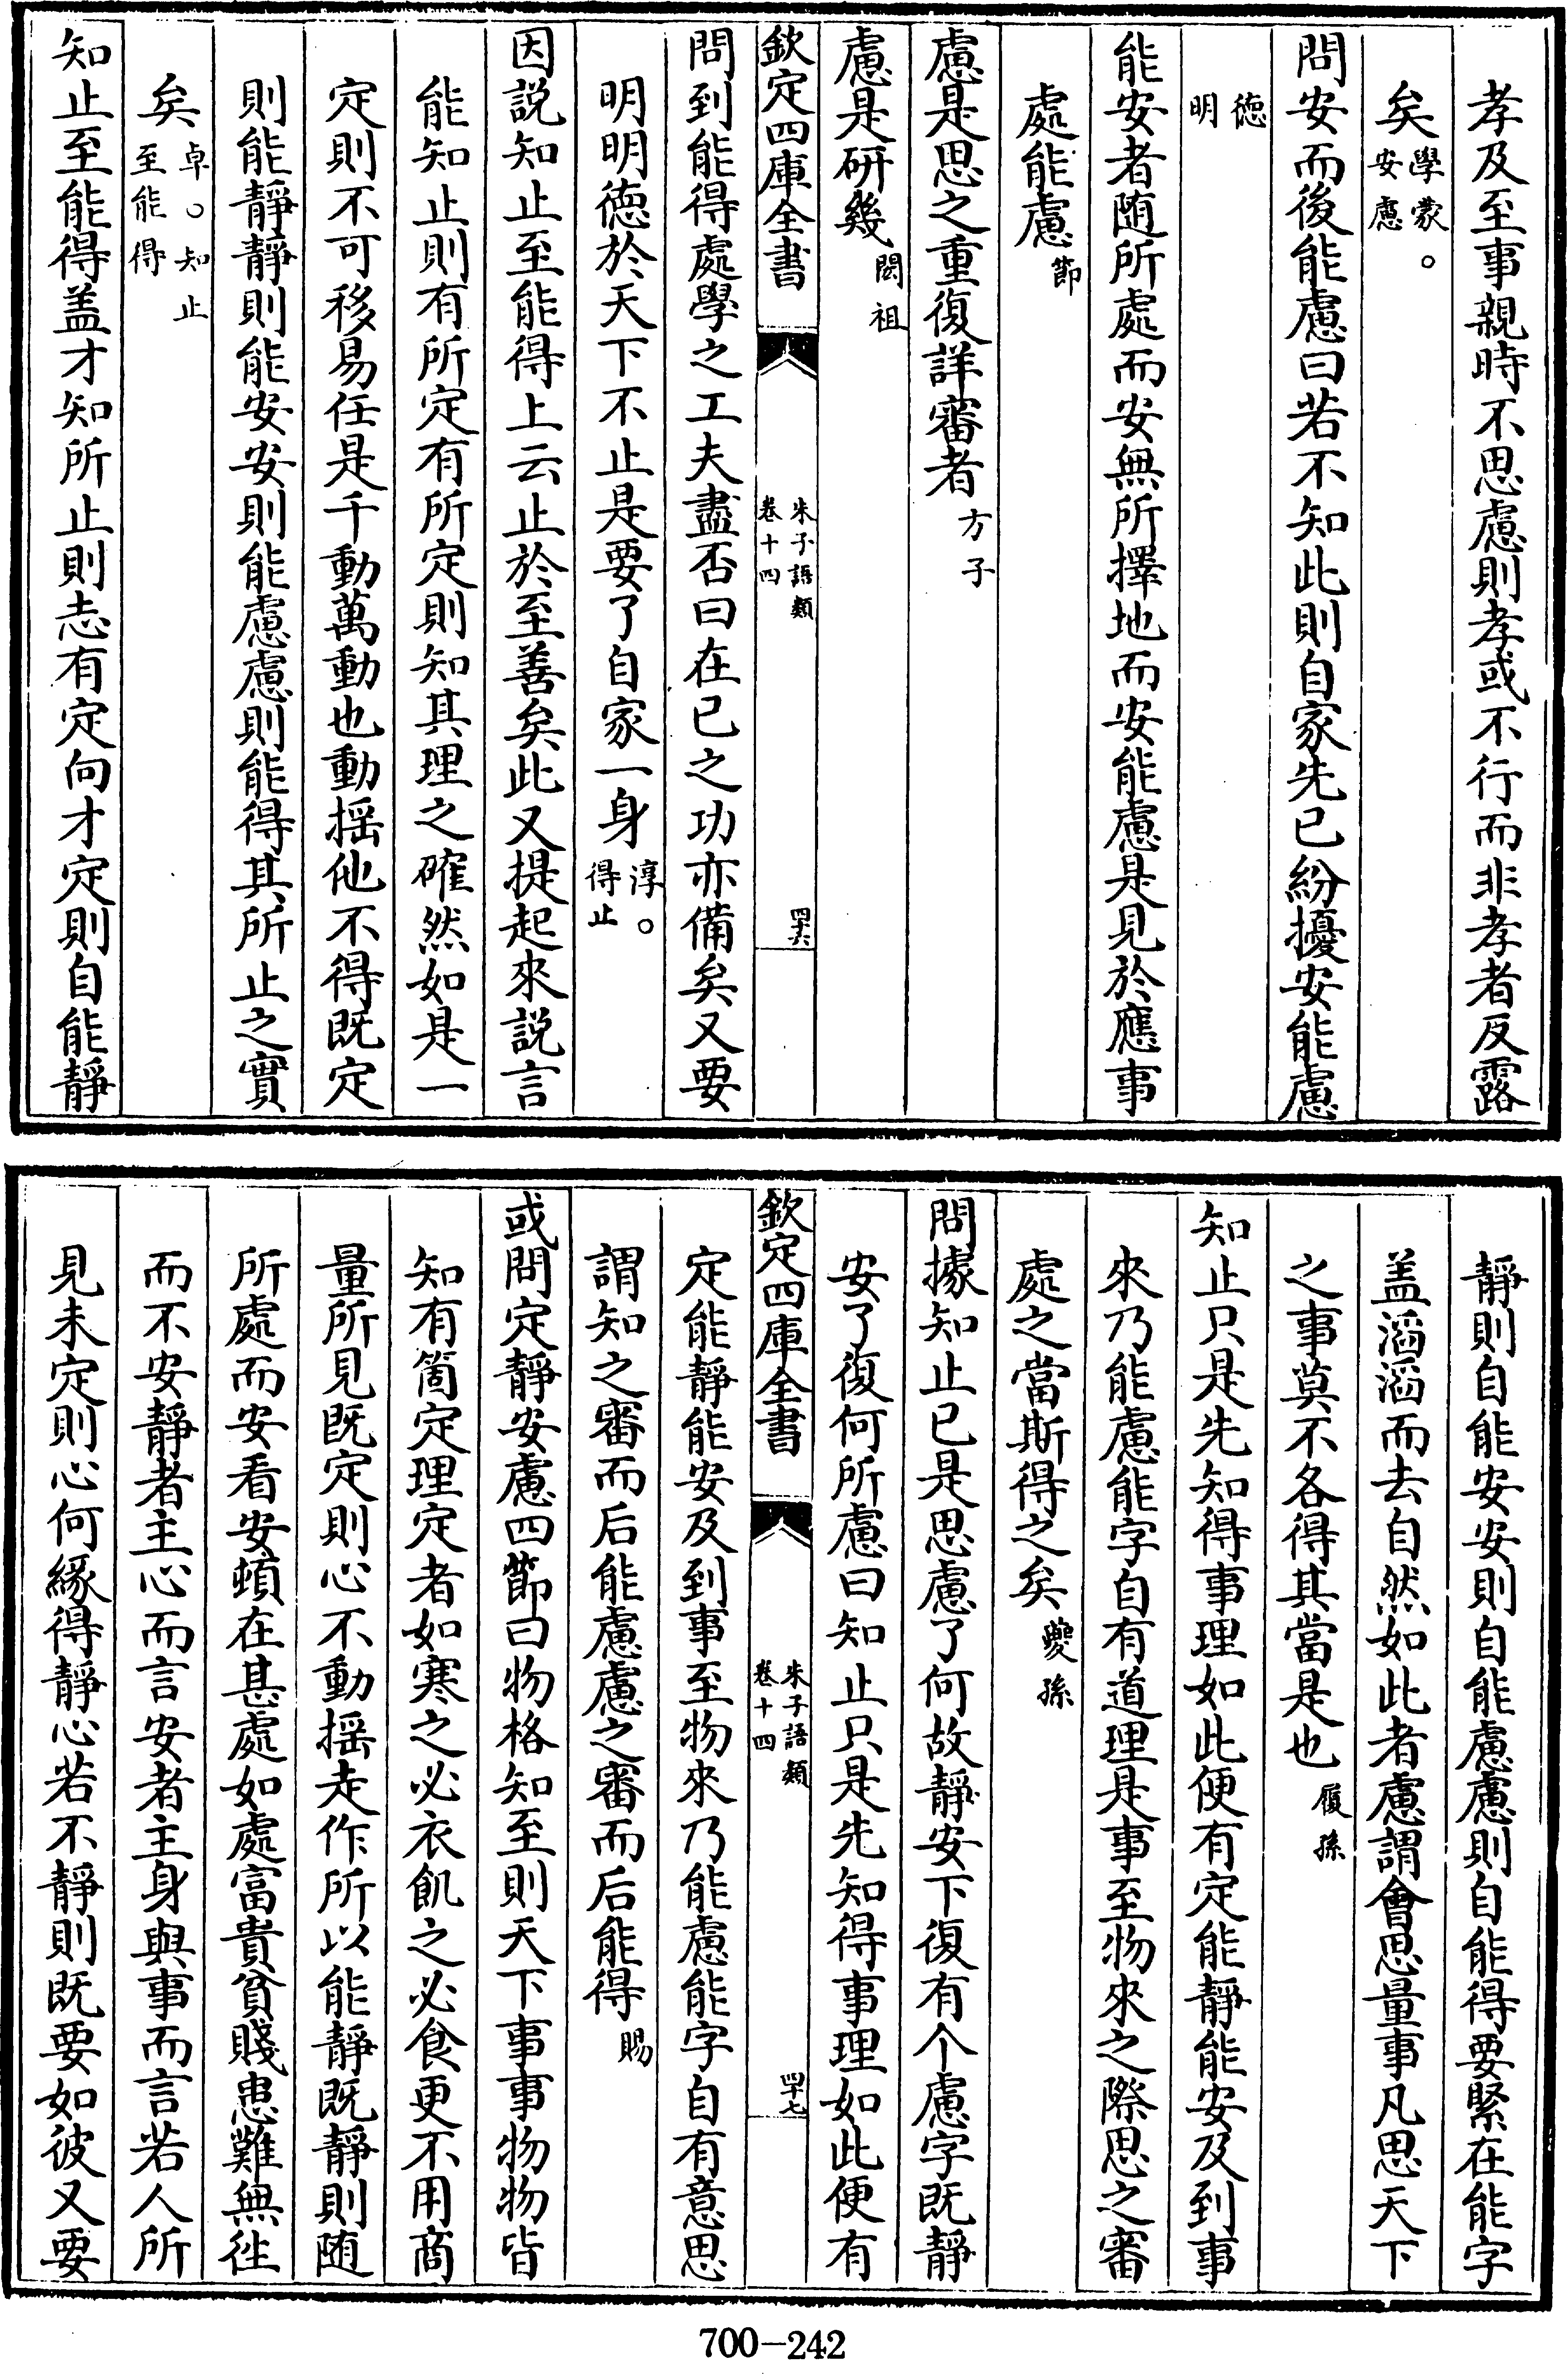 孝及至事親時不思慮則孝或不行而非孝者反露
矣學蒙。安慮
問安而後能慮曰若不知此則自家先已紛擾安能慮
德明
能安者随所處而安無所擇地而安能慮是見於應事
處能慮節
慮是思之重復詳審者方子
慮是研幾閎祖
欽定四庫全書
朱子語類
卷十四
四十六
問到能得處學之工夫盡否曰在已之功亦備矣又要
明明德於天下不止是要了自家一身淳。得止
因説知止至能得上云止於至善矣此又提起來説言
能知止則有所定有所定則知其理之確然如是一
定則不可移易任是千動萬動也動揺他不得既定
則能靜靜則能安安則能慮慮則能得其所止之實
矣卓。知止至能得
知止至能得盖才知所止則志有定向才定則自能靜
靜則自能安安則自能慮慮則自能得要緊在能字
盖滔滔而去自然如此者慮謂會思量事凡思天下
之事莫不各得其當是也履孫
知止只是先知得事理如此便有定能靜能安及到事
來乃能慮能字自有道理是事至物來之際思之審
處之當斯得之矣夔孫
問據知止已是思慮了何故靜安下復有个慮字既靜
安了復何所慮曰知止只是先知得事理如此便有
欽定四庫全書
朱子語類
卷十四
四十七
定能靜能安及到事至物來乃能慮能字自有意思
謂知之審而后能慮慮之審而后能得賜
或問定靜安慮四節曰物格知至則天下事事物物皆
知有箇定理定者如寒之必衣飢之必食更不用商
量所見既定則心不動揺走作所以能靜既靜則随
所處而安看安頓在甚處如處富貴貧賤患難無徃
而不安靜者主心而言安者主身與事而言若人所
見未定則心何緣得靜心若不靜則既要如彼又要
700-242